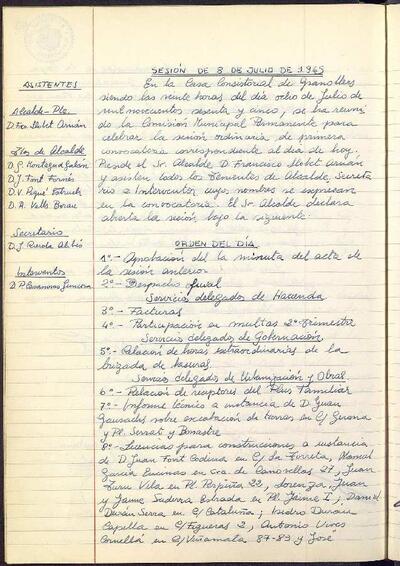 SESIÓN DE 8 DE JULIO DE 1965
ASISTENTES
Alcalde-Pte.
D. Fco. Llobet Arnán
Ttes. de Alcalde
D. J. Font Fornés
D. V. Piqué
D. A. Valls Borau
Secretario
D. J. Rueda
Interventor
D. P. Casanovas
En la Casa Consistorial de Granollers
siendo las veinte horas del día ocho de Julio de
mil novecientos sesenta y cinco, se ha reuni
do la Comisión Municipal Permanente para
celebrar la sesión ordinaria de primera
convocatoria correspondiente al día de hoy.
Preside el Sr. Alcalde D. Francisco Llobet Arnán
y asisten todos los Tenientes de Alcalde, Secreta
rio e Interventor cuyos nombres se expresan
en la convocatoria. El Sr. Alcalde declara
abierta la sesión bajo la siguiente.
ORDEN DEL DÍA
1º.- Aprobación del la minuta del acta de
la sesión anterior.
2º.- Despacho oficial
Servicios delegados de Hacienda
3º.- Facturas
4º.- Participación en multas 2º Trimestre
Servicios delegados de Gobernación
5º.- Relación de horas extraordinarias de la
brigada de basuras.
Servicios delegados de Urbanización y Obras
6º.- Relación de receptores del Plus Familiar
7º.- Informe técnico a instancia de D. Juan
Gausachs sobre excavación de tierras en C/ Gerona
y Pl. Serrat y Bonastre
8º.- Licencias para construcciones a instancia
de D. Juan Font Codina en C/ La Torreta, Manuel
García Encinas en Cra. de Cardedeu 27, Juan
Turu Vila en Pl. Perpiña 22, Lorenza, Juan
y Jaime Suderra Estrada en Pl. Jaime I; Daniel
Durán Serra en C/ Cataluña; Isidro Durán
Capella en C/ Figueras 2, Antonio Vives
Cornellá en C/ Viñamala 87-89 y José